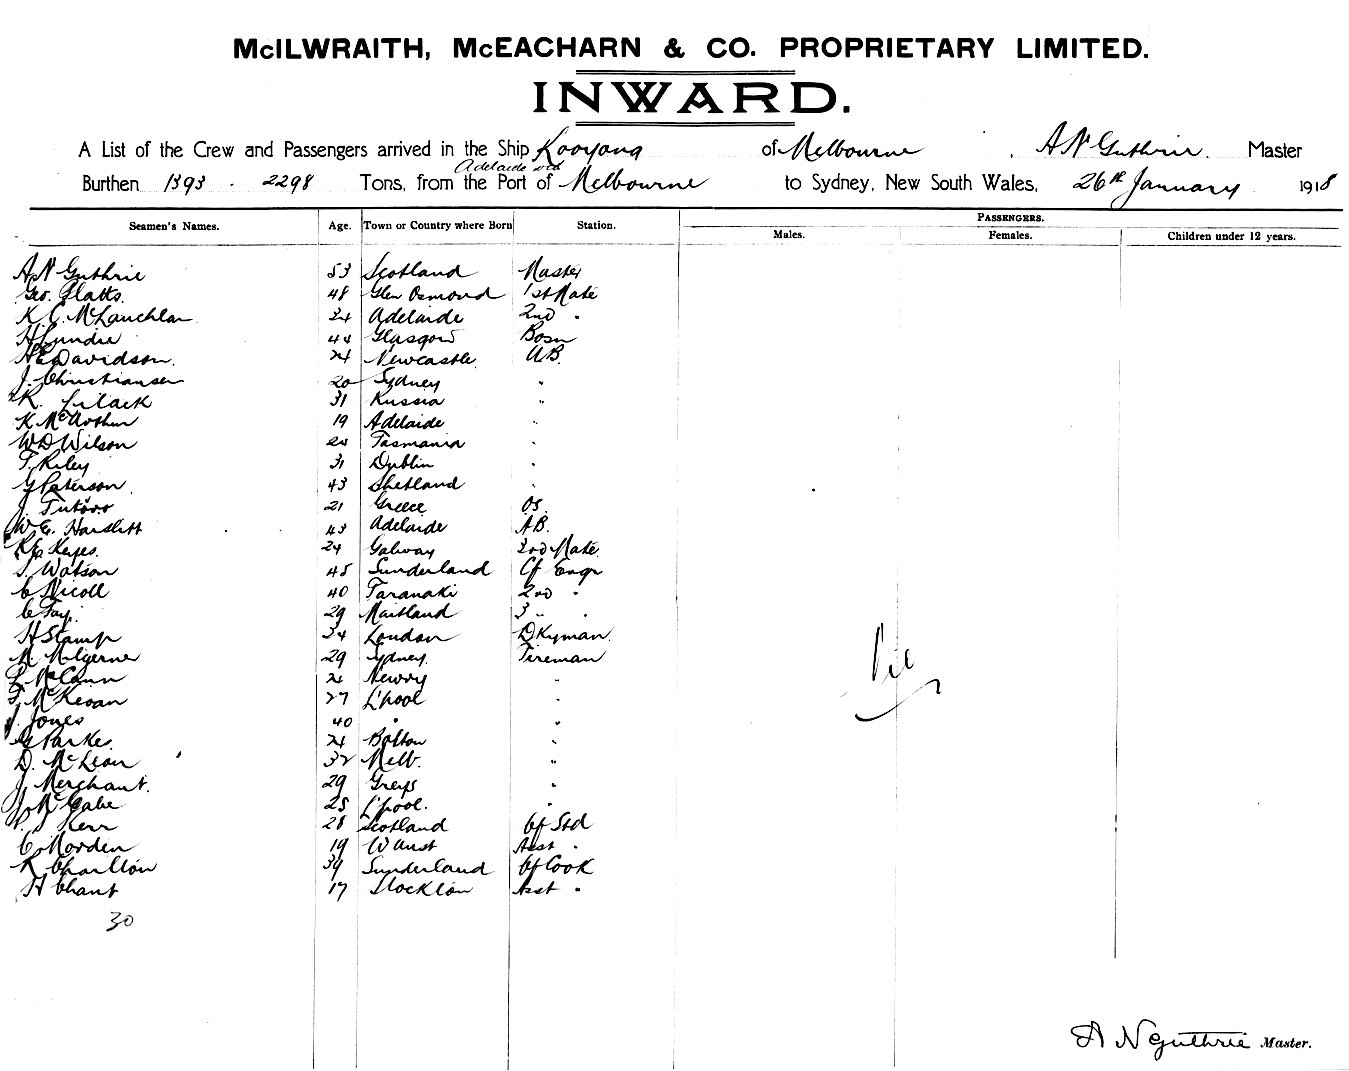 McILWRAITH, McEACHARN & CO. PROPRIETARY LIMITED.
INWARD.
A List of the Crew and Passengers arrived in the Ship Kooyong of Melbourne, A N Guthrie. Master
Adelaide via
Burthen 1393 - 2298 Tons, from the Port of Melbourne to Sydney, New South Wales, 26th January 1918
PASSENGERS.
Seamen's Names. Age. Town or Country where Born Station. Males. Females. Children under 12 years.
A N Guthrie 53 Scotland Master
Geo. Slatts. 48 Glen Osmond 1st Mate
K. C. McLauchlan Adelaide 2nd "
H Lundie 44 Glasgow Bosn
H E Davidson. 24 Newcastle AB.
J. Christiansen 20 Sydney "
K. 31 Russia "
K McArthur 19 Adelaide "
W D Wilson Tasmania "
T. Riley 31 Dublin "
G Paterson. 43 Shetland "
J. 21 Greece OS.
W. E. Haslett 43 Adelaide AB.
Keyes. 24 Galway 3rd Mate.
Watson 45 Sunderland Cf Engr
C Nicoll 40 Taranaki 2nd "
C Fay. 29 Maitland 3 " "
H Stamp 34 London DKyman.
M. 29 Sydney. Fireman
McCann 21 Newry "
F. McKeoan 27 L'pool "
J. Jones 40 " "
G Parkes. 24 Bolton "
D. McLean 32 Melb. "
J Merchant. 29 Greys "
J. McCabe 25 L'pool. "
Kerr 28 Scotland Cf Std
C. Morden 19 W Aust Asst "
R Charlton 39 Sunderland Cf Cook
H Chant 17 Stockton Asst "
Nil
30
A N Guthrie Master.